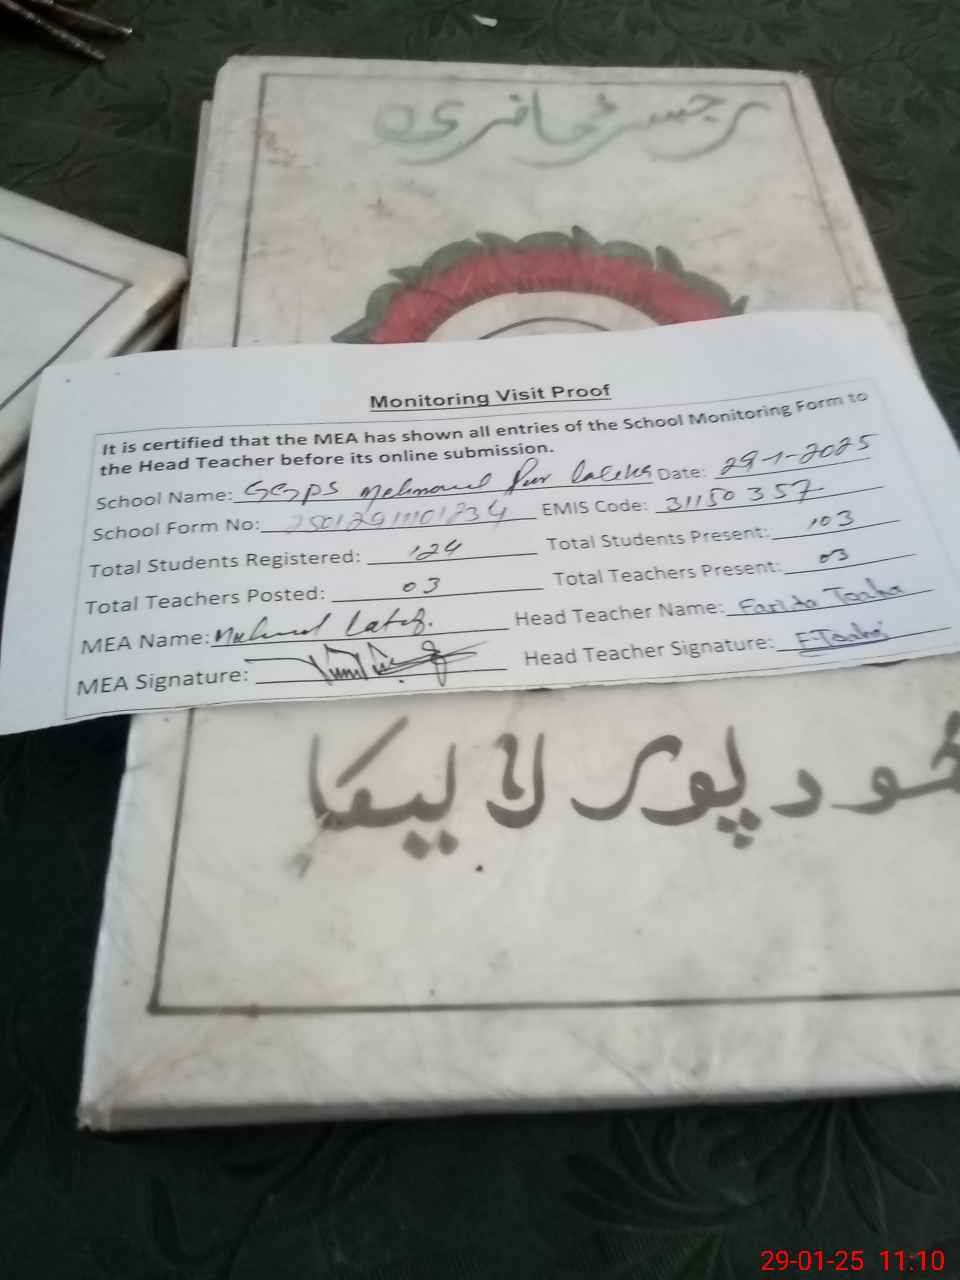 رجسٹر حاضری
Monitoring Visit Proof
It is certified that the MEA has shown all entries of the School Monitoring Form to
the Head Teacher before its online submission.
School Name: GGPS Mehmood Pur Date: 29-1-2025
School Form No: EMIS Code: 31150357
Total Students Registered: 124 Total Students Present: 103
Total Teachers Posted: 03 Total Teachers Present: 03
MEA Name: Latif. Head Teacher Name: Farida
MEA Signature: Head Teacher Signature:
محمود پور لالیکا
29-01-25 11:10